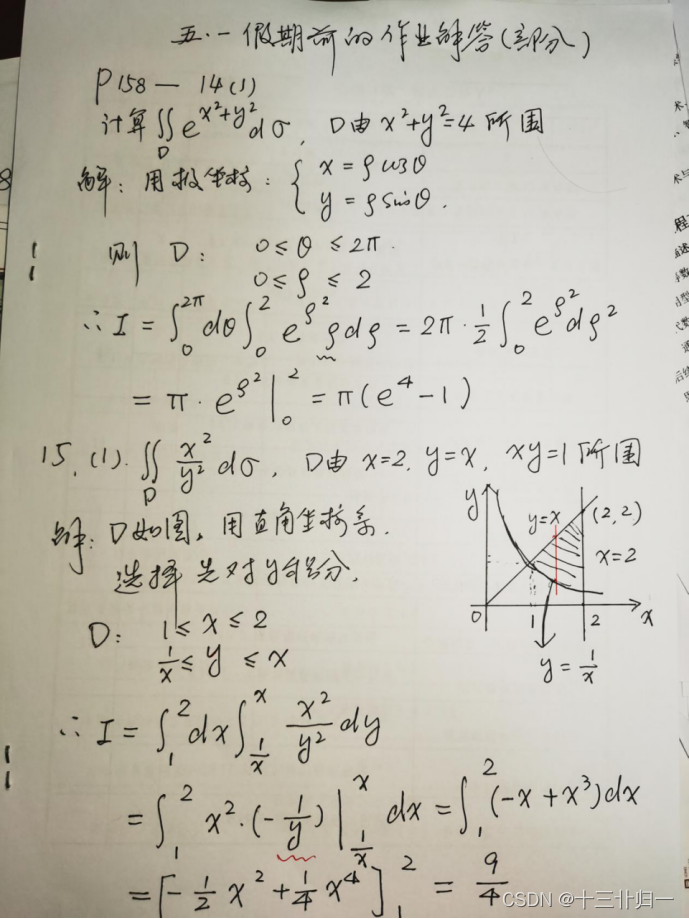 五.一假期前的作业解答(部分)
P158 — 14(1)
计算∬_D e^{x²+y²}dσ, D由x²+y²=4所围
解: 用极坐标: { x = ρcosθ
y = ρsinθ.
则 D: 0 ≤ θ ≤ 2π.
0 ≤ ρ ≤ 2
∴ I = ∫₀^{2π} dθ ∫₀² e^{ρ²} ρdρ = 2π · 1/2 ∫₀² e^{ρ²} dρ²
= π · e^{ρ²} |₀² = π(e⁴ − 1)
15, (1). ∬_D x²/y² dσ, D由 x=2, y=x, xy=1 所围
解: D如图, 用直角坐标系.
选择先对y积分.
D: 1 ≤ x ≤ 2
1/x ≤ y ≤ x
y
y=x
(2,2)
x=2
0 1 2 x
y = 1/x
∴ I = ∫₁² dx ∫_{1/x}^x x²/y² dy
= ∫₁² x² · (−1/y) |_{1/x}^x dx = ∫₁² (−x + x³)dx
= [−1/2 x² + 1/4 x⁴]₁² = 9/4
CSDN @十三卝归一